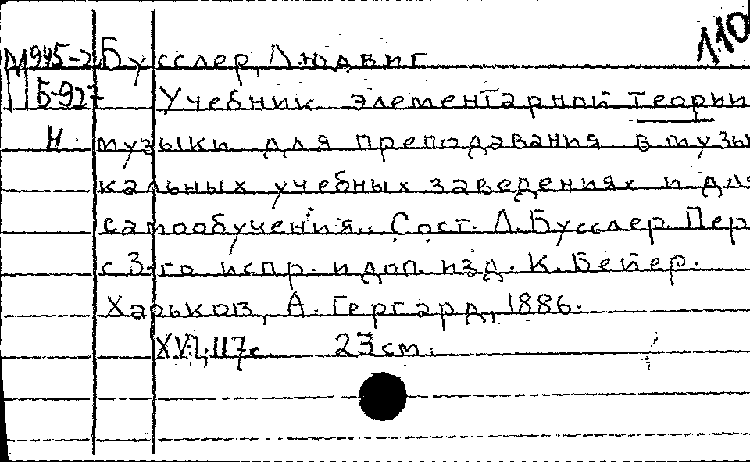 110
1945-2 Бусслер, Людвиг
Б-927 Учебник элементарной теории
Н музыки для преподавания в музы
кальных учебных заведениях и для
самообучения. Сост. Л. Бусслер. Пер
с 3-го испр. и доп. изд. К. Бейер.
Харьков, А. Гергард, 1886.
XVI, 117 с. 23 cm.